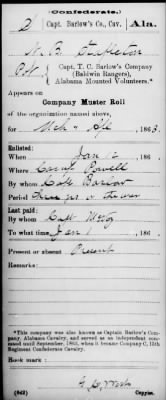 (Confederate.)
S Capt. Barlow's Co., Cav., Ala.
N. B. Stapleton
Pvt, Capt. T. C. Barlow's Company
(Baldwin Rangers),
Alabama Mounted Volunteers.*
Appears on
Company Muster Roll
of the organization named above,
for Mch & Apl, 1863.
Enlisted:
When Jan 12, 186
Where Camp Powell
By whom Capt Barlow
Period three yrs or the war
Last paid:
By whom Capt
To what time Jan 1, 186
Present or absent Present
Remarks:
*This company was also known as Captain Barlow's Company, Alabama Cavalry, and served as an independent command until September, 1863, when it became Company C, 15th Regiment Confederate Cavalry.
Book mark:
(642)